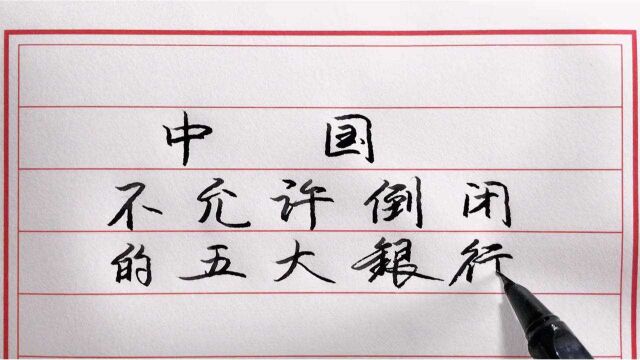 中国
不允许倒闭
的五大銀行